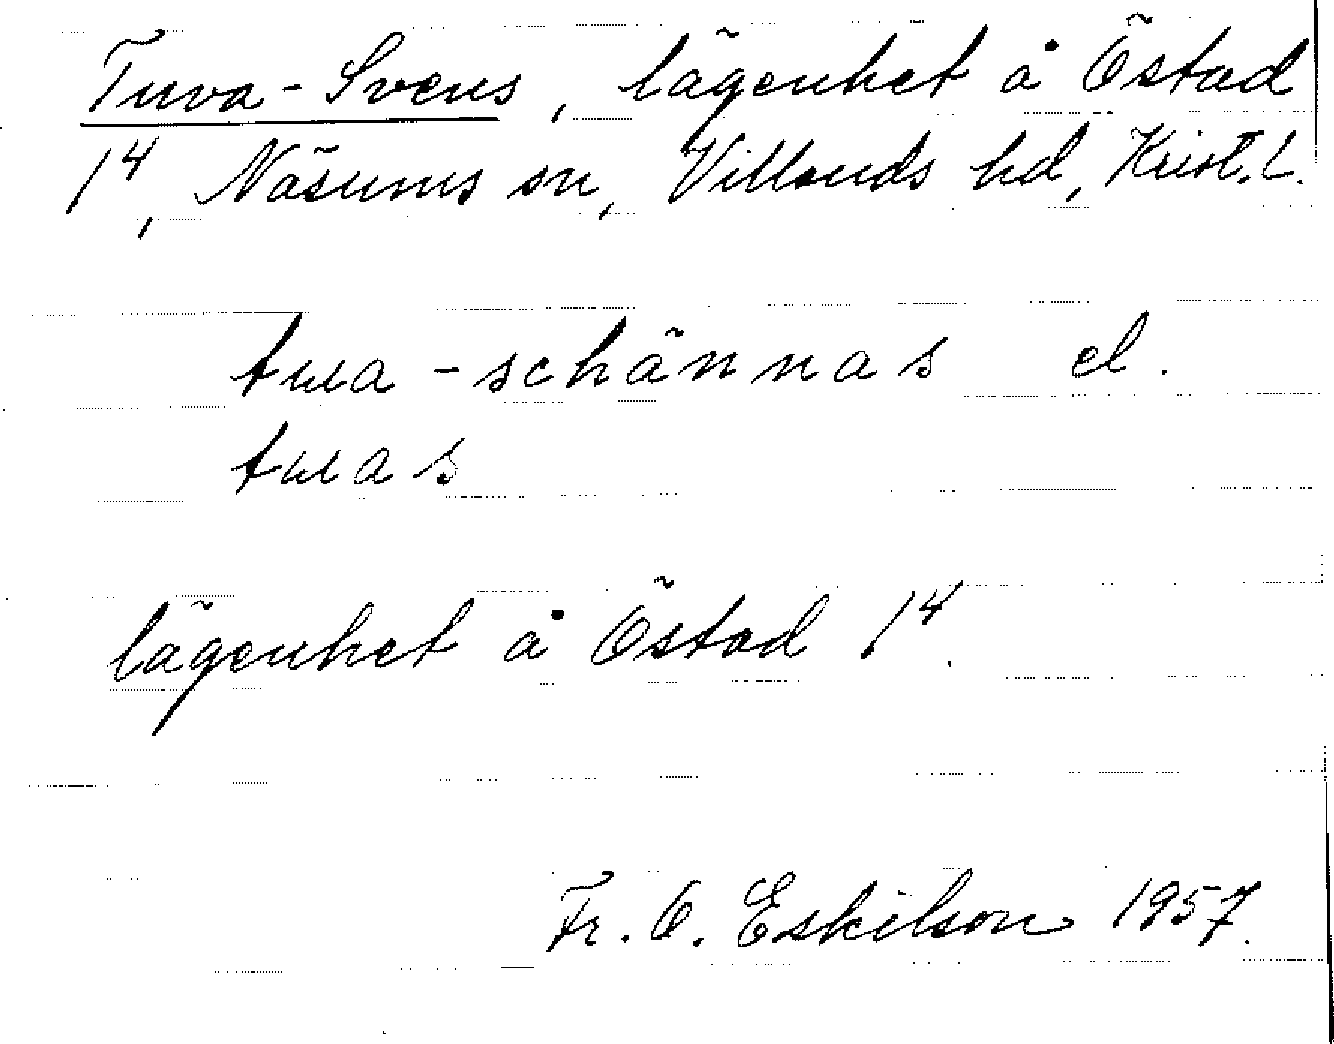 Tuva-Svens, lägenhet å Östad
1⁴, Näsums sn, Villands hd, Krist. L.
tua-schännas el.
tuas
lägenhet å Östad 1⁴.
Fr. O. Eskilson 1957.